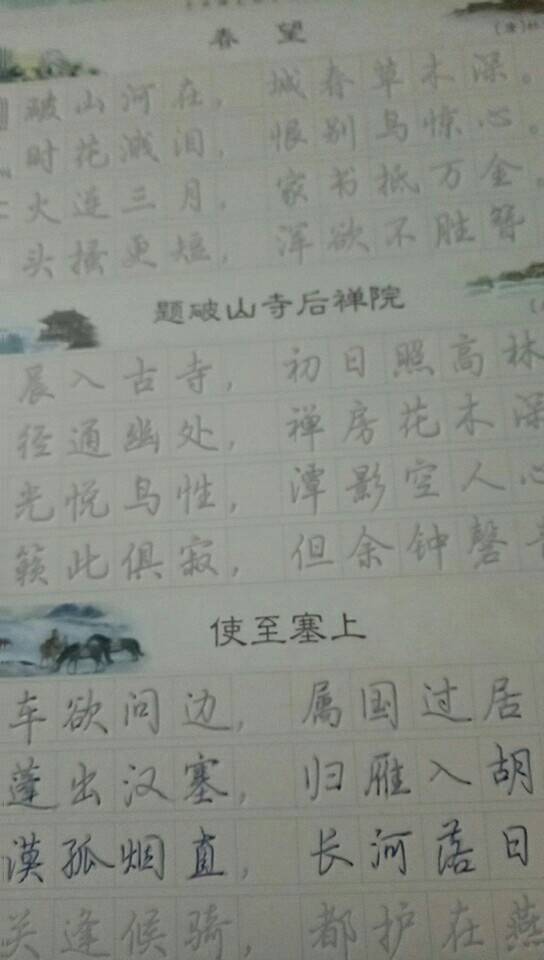 春 望
（唐）杜
破山河在， 城春草木深。
时花溅泪， 恨别鸟惊心。
火连三月， 家书抵万金。
头搔更短， 浑欲不胜簪
题破山寺后禅院
晨入古寺， 初日照高林
径通幽处， 禅房花木深
光悦鸟性， 潭影空人心
籁此俱寂， 但余钟磬音
使至塞上
车欲问边， 属国过居
蓬出汉塞， 归雁入胡
漠孤烟直， 长河落日
关逢候骑， 都护在燕